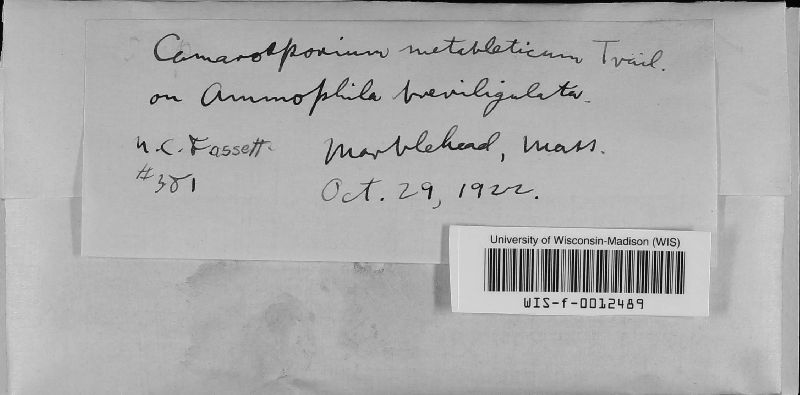 Camarosporium metableticum Trail.
on Ammophila breviligulata.
N.C. Fassett. Marblehead, Mass.
#381 Oct. 29, 1922.
University of Wisconsin-Madison (WIS)
WIS-f-0012489